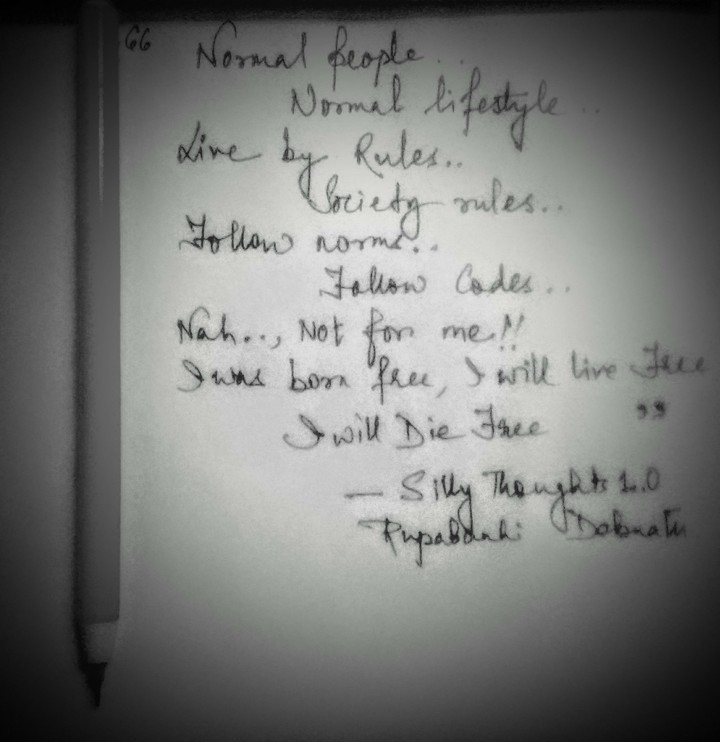 “ Normal people...
Normal lifestyle..
Live by Rules..
Society rules..
Follow norms..
Follow Codes..
Nah.., Not for me!!
I was born free, I will live Free
I will Die Free ”
— Silly Thoughts 1.0
Debnath